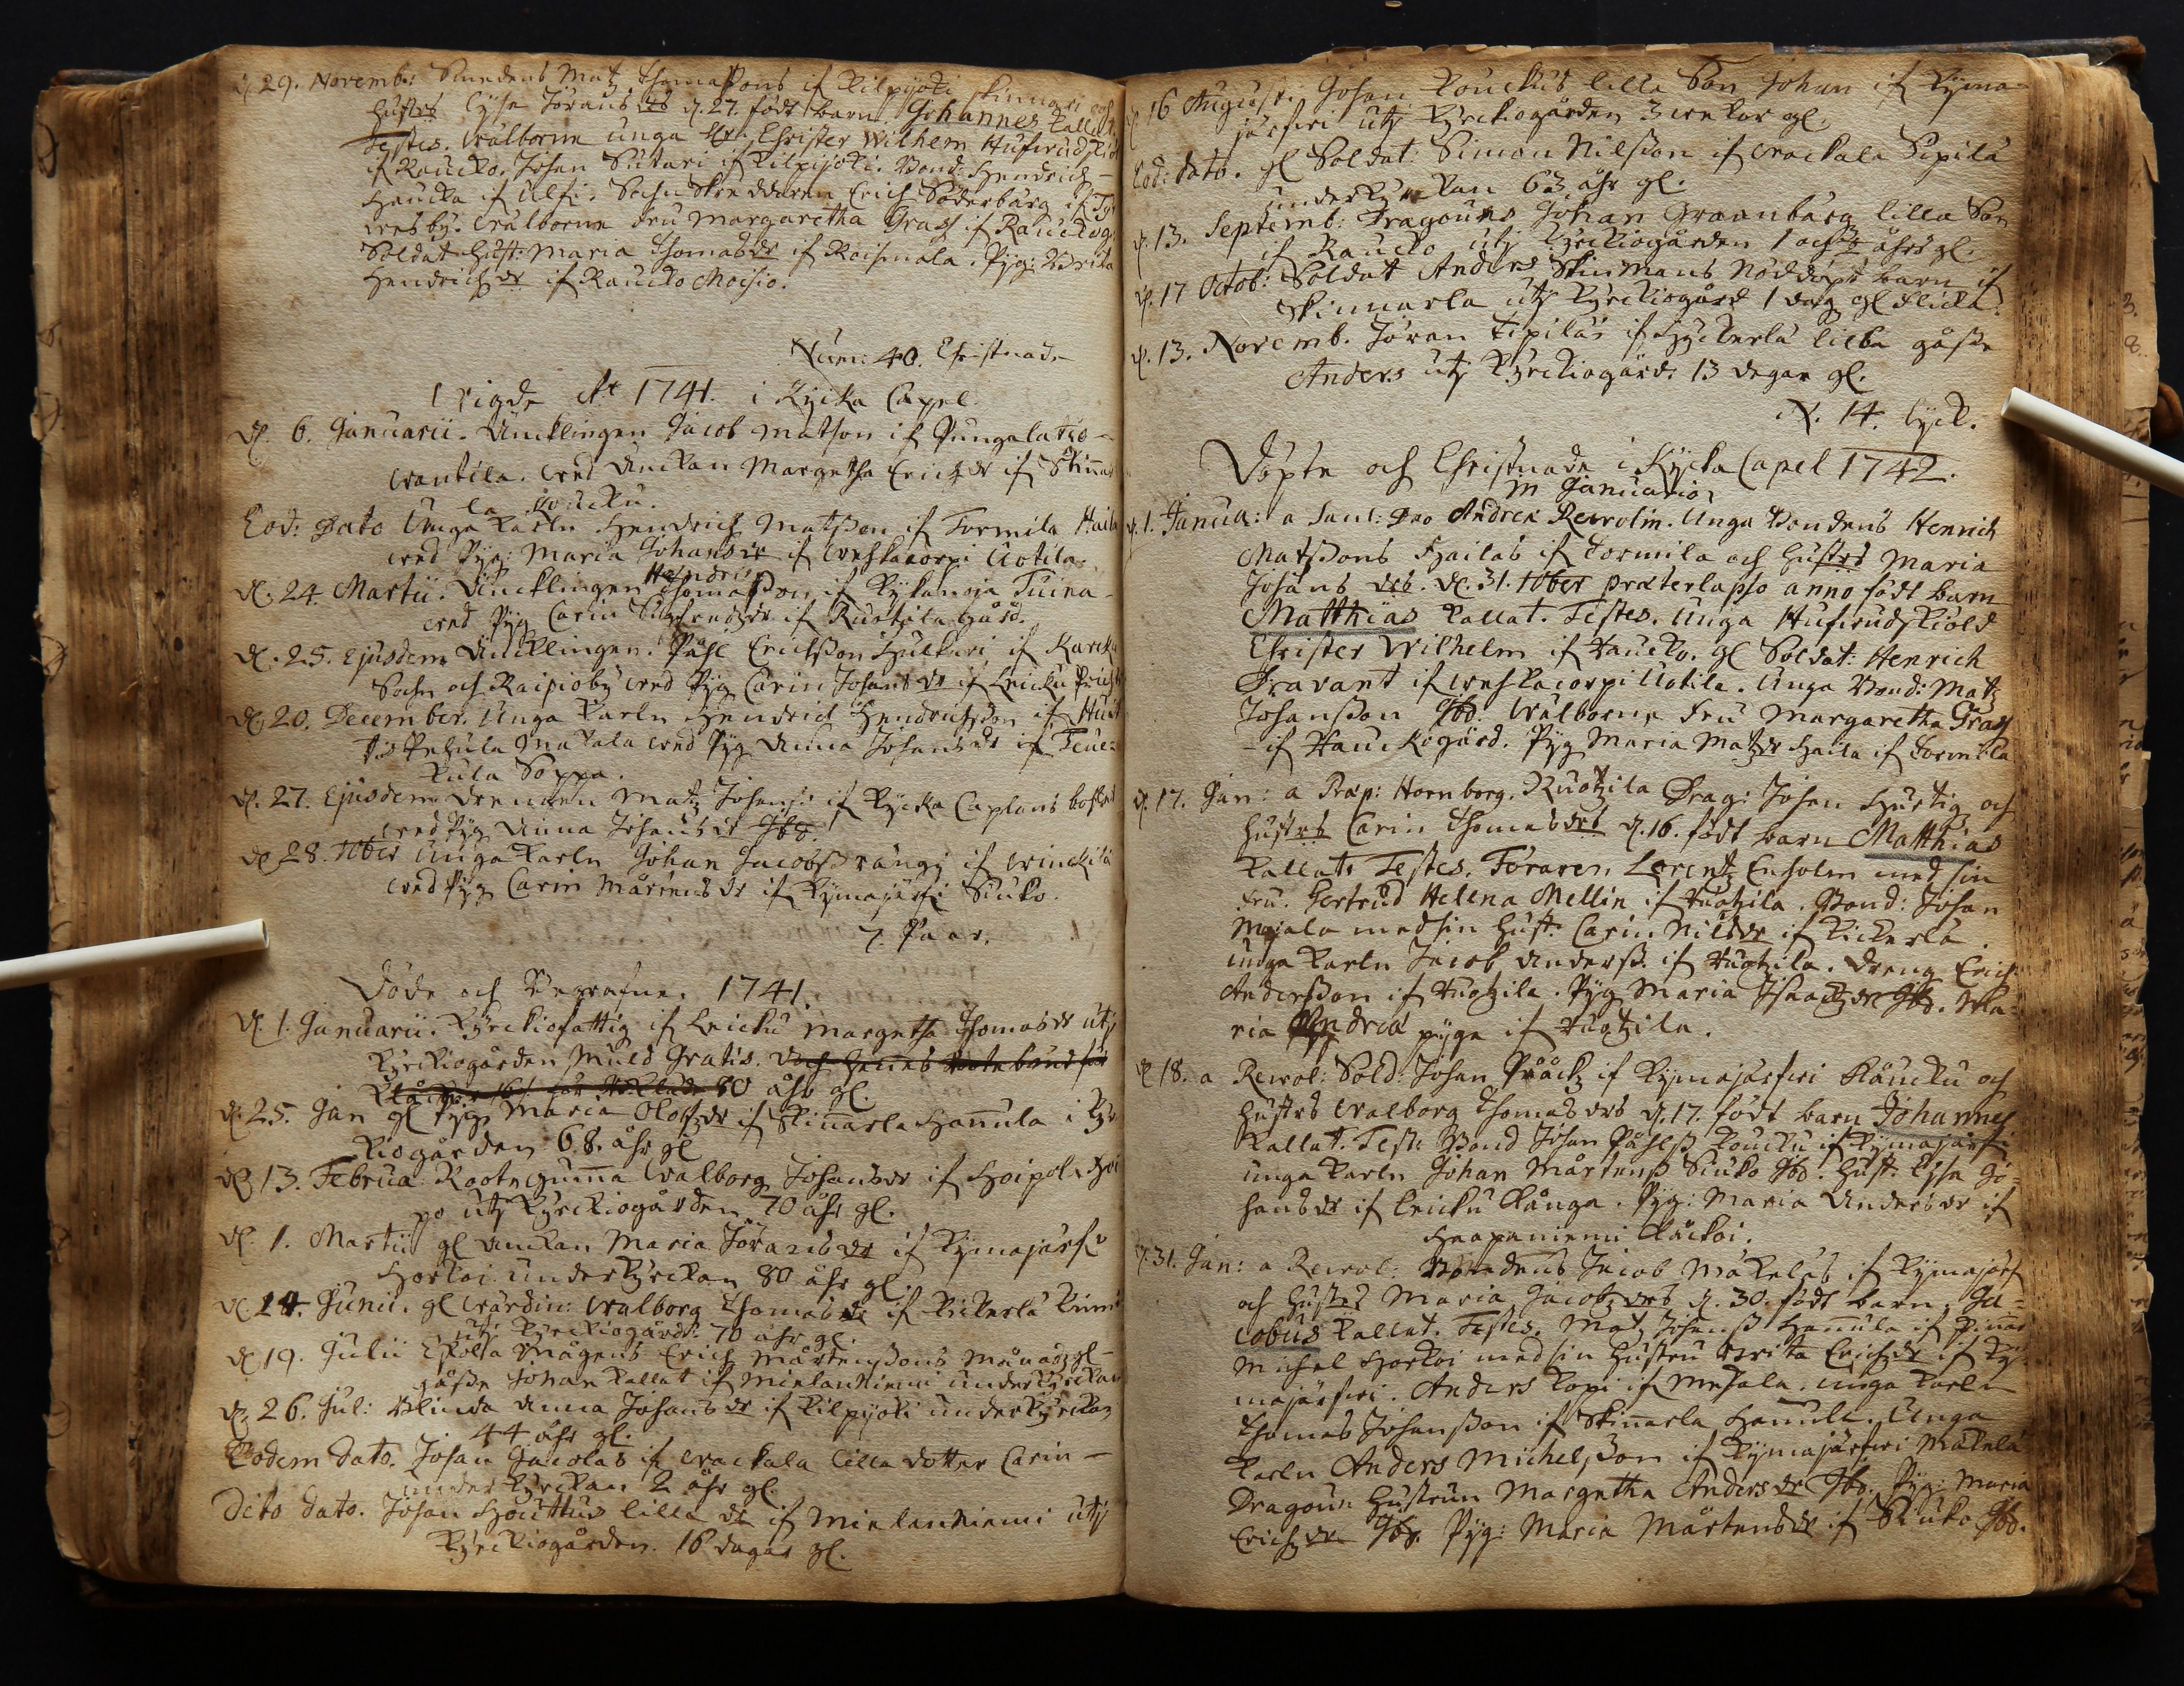 d. 29. Novemb: Smedens Matz Thomassons if Kilpijoki Skinnari och
hustrs Lijsa Jörans drs d. 27. födt barn. Johannes kallat.
Testes. Wälborne unga Hr. Christer Wilhem Hufwudskiöl
if Raucko. Johan Sutari if Kilpijoki. Bond: Hendrich
Haucka if Ulfi. Sochn Skreddaren Erich Söderbärg if
wesby. Wälborne Fru Margaretha Grass if Rauckog
Soldat Hust: Maria Thomasdr if Raismala. Pyg: Brita
Hendrichdr if Raucko Moisio.
Num: 40. Christnade
Wigde Ao 1741. i Kyrka Capel.
d. 6. Januarii. Enklingen Jacob Matson if Pungalatio
wantila. wed Enckan Margetha Erichdr if Skinnar
la Koucku.
Eod: Dato Unga Karln Hendrich Matsson if Tormila Haila
wed Pyg: Maria Johansdr if Weskacorpi Uotila.
d. 24. Martii. Encklingen Hendric Thomasson if Kykanoja Tuina
wed Pyg Carin Sigfredzdr if Ruotzila Gård.
d. 25. Ejusdem Encklingen. Påhl Erichsson Hulkari if Karcku
Sochn och Raipioby wed Pyg Carin Johansdr if Leicku
d. 20. December. Unga Karln Hendrich Hendrichsson if Huit
tis Pehula Makala wed Pyg Anna Johansdr if
kula Soppa.
d. 27. Ejusdem Drengen Matz Johanss. if Kycka Caplans bostell
wed Pyg Anna Johansdr Ibd.
d. 28. Xber Unga Karln Johan Jacobss rängi if Winckilä
wed Pyg Carin Mårtensdr if Kymajerfi Siuko.
7. Paar.
Döde och Begrafne. 1741.
d. 1. Januarii. Kyrckiofattig if Leicku Margetha Thomasdr utj
Kyrckiogården Muld Gratis.
60 åhr gl.
d. 25. Jan gl Pyg. Maria Olofzdr if Skinnarla Hannula i Kyr
kiogården 68. åhr gl
d. 13. Februa: Rootegumma Walborg Johansdr if Hoipola Hoi
po utj Kyrckiogården 70 åhr gl.
d. 1. Martii gl Enckan Maria Jöransdr if Kymajärfi
Horkoi under Kyrckan 80 åhr gl.
d. 14. Junii. gl Wärdin: Walborg Thomasdr if Kickerlä
utj Kyrckiogård: 70 åhr gl.
d. 19. Julii Eskola Mågens Erich Mårtenssons Månadz gl
gåsse Johan kallat if Mielanniemi under Kyrckan
d. 26. Jul: Blinda Anna Johansdr if Kilpijoki under Kyrckan
44 åhr gl.
Eodem Dato. Johan Jacolas if Wackala lilla dotter Carin
under Kyrckan 2 åhr gl.
Dito dato. Johan Houttus lilla dr if Mielanniemi utj
Kyrckiogården. 16 dagar gl.
d. 16 August: Johan Kouckus lilla Son Johan if Kyma
järfwi utj Kyrckiogården 3 wekor gl.
Eod: dato. gl Soldat: Simon Nilsson if Wackala Sipilä
under Kyrckan 63 åhr gl.
d. 13. Septemb: Dragouns Johan Granbärg lilla Son
if Raucko utj Kyrckiogården 1 och åhrs gl.
d. 17 Octob: Soldat Anders Skinmans Nöddöpt barn if
Skinnarla utj Kyrckiogård 1 dag gl flicka.
d. 13. Novemb. Jöran Sipiläs if Kyckerlä lilla gåsse
Anders utj Kyrckiogård. 13 dagar gl.
N. 14. Lyck.
Döpte och Christnade i Kycka Capel 1742.
In Januario
d. 1. Janua: a Andrea Rewolin. Unga Bondens Henrich
Matssons Hailas if Tormila och hustrs Maria
Johans drs. d. 31. Xber præterlapso anno födt barn
Matthias kallat. Testes. Unga Hufwudskiöld
Christer Wilhelm if Raucko. gl Soldat: Henrich
Dravant if Weskacorpi Uotila. Unga Bond: Matz
Johansson Ibd: Wälborne Fru Margaretha Grass
if Rauckogård. Pyg Maria Matzdr Haila if Tormila
d. 17. Jan: a Præp: Hornborg. Ruotzila Drag: Johan Hurtig och
hustrs Carin Thomasdrs d. 16. födt barn Matthias
kallat. Testes. Föraren Lorentz Enholm med sin
Fru. Gertrud Helena Mellin if Ruotzila. Bond: Johan
Majala med sin hust: Carin Nilsdr if Kickerlä
unga Karln Jacob Anderss. if Ruotzila. Dreng Erich
Andersson if Ruotzila. Pyg Maria Isaachdr Ibd. Ma
ria Andrea pyga if Ruotzila.
d. 18. a Rewol: Sold: Johan Präck if Kymajärfwi Kåucku och
hustrs Walborg Thomas drs d. 17. födt barn Johannes
kallat. Test: Bond Johan Påhlss Koucku if Kymajärfi
unga Karln Johan Mårtenss Siuko Ibd. hust. Lysa Jo=
hansdr if Leicku Långa. Pyg: Maria Andersdr if
Haapaniemi Kåckoi.
d. 31. Jan: a Rewol: Bondens Jacob Mäkeläs if Kymajärf
och hustrs Maria Jacobzdrs d. 30. födt barn. Ja=
cobus kallat. Testes. Matz Johanss Hannula if Skinnar
Michel Horkoi med sin hustru Brita Erichdr if Ky
majärfwi. Anders Kopi if Mehala. unga Karln
Thomas Johansson if Skinnarla Hannula. Unga
Karln Anders Michelsson if Kymajärfwi Mäkelä
Dragoun Hustrun Margetha Andersdr Ibd. Pyg: Maria
Erichdr Ibd. Pyg: Maria Mårtensdr if Siuko Ibd.